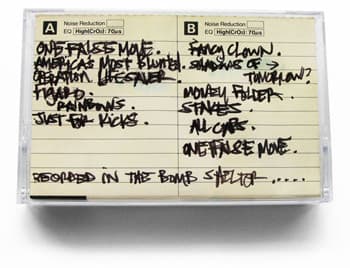 A Noise Reduction
EQ High(CrO2) : 70μs
ONE FALSE MOVE.
AMERICAS MOST BLUNTED.
OPERATION LIFESAVER.
FIGARO.
RAINBOWS.
JUST FOR KICKS.
B Noise Reduction
EQ High(CrO2) : 70μs
FANCY CLOWN.
SHADOWS OF →
TOMORROW?
MONEY FOLDER.
STAKES
ALL CAPS.
ONE FALSE MOVE.
RECORDED IN THE BOMB SHELTER.....